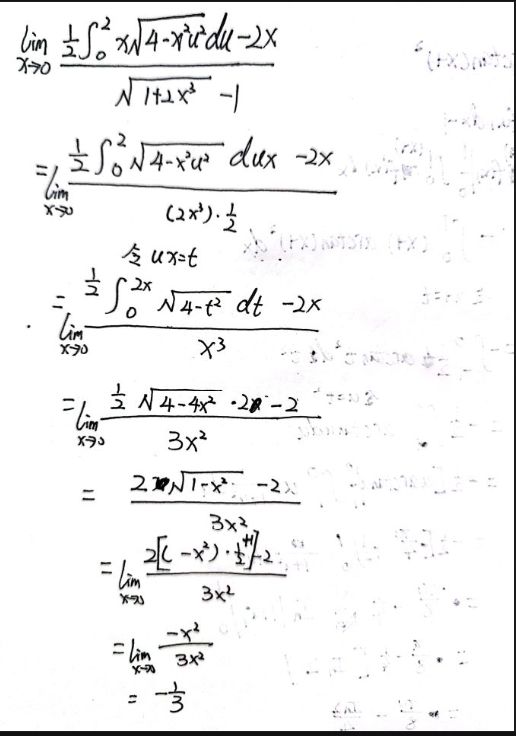 lim x→0 (1/2 ∫₀² x√(4-x²u²) du - 2x) / (√(1+2x³) - 1)
= lim x→0 (1/2 ∫₀² √(4-x²u²) dux - 2x) / ((2x³)·1/2)
令 ux=t
= lim x→0 (1/2 ∫₀^(2x) √(4-t²) dt - 2x) / x³
= lim x→0 (1/2 √(4-4x²) ·2 - 2) / 3x²
= (2√(1-x²) - 2) / 3x²
= lim x→0 (2[(-x²)·1/2+1]-2) / 3x²
= lim x→0 -x² / 3x²
= -1/3